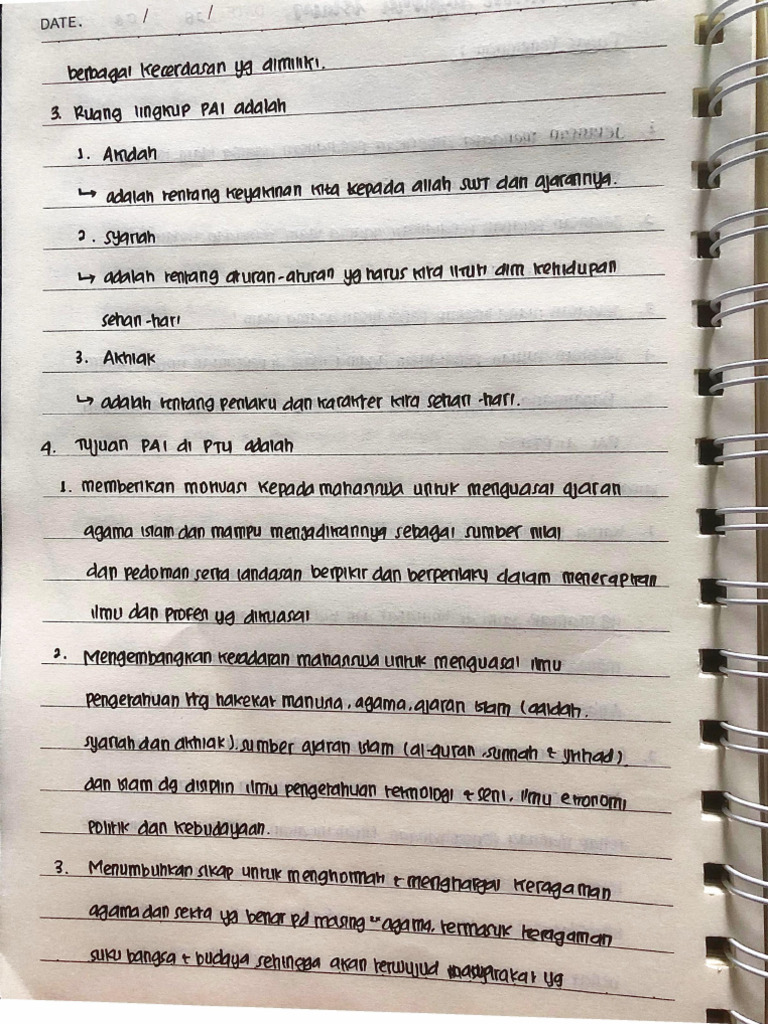 DATE. / /
berbagai kecerdasan yg dimiliki.
3. Ruang lingkup PAI adalah
1. Akidah
↳ adalah tentang keyakinan kita kepada allah SWT dan ajarannya.
2. syariah
↳ adalah tentang aturan-aturan yg harus kita ikuti dlm kehidupan
sehari-hari
3. Akhlak
↳ adalah tentang perilaku dan karakter kita sehari-hari.
4. Tujuan PAI di PTU adalah
1. memberikan motivasi kepada mahasiswa untuk menguasai ajaran
agama islam dan mampu menjadikannya sebagai sumber nilai
dan pedoman serta landasan berpikir dan berperilaku dalam menerapkan
ilmu dan profesi yg dikuasai
2. Mengembangkan kesadaran mahasiswa untuk menguasai ilmu
pengetahuan ttg hakekat manusia, agama, ajaran islam (aqidah,
syariah dan akhlak), sumber ajaran islam (al-quran, sunnah + ijtihad)
dan islam dg disiplin ilmu pengetahuan teknologi + seni, ilmu ekonomi
politik dan kebudayaan.
3. Menumbuhkan sikap untuk menghormati + menghargai keragaman
agama dan sekta yg benar pd masing" agama, termasuk keragaman
suku bangsa + budaya sehingga akan terwujud masyarakat yg